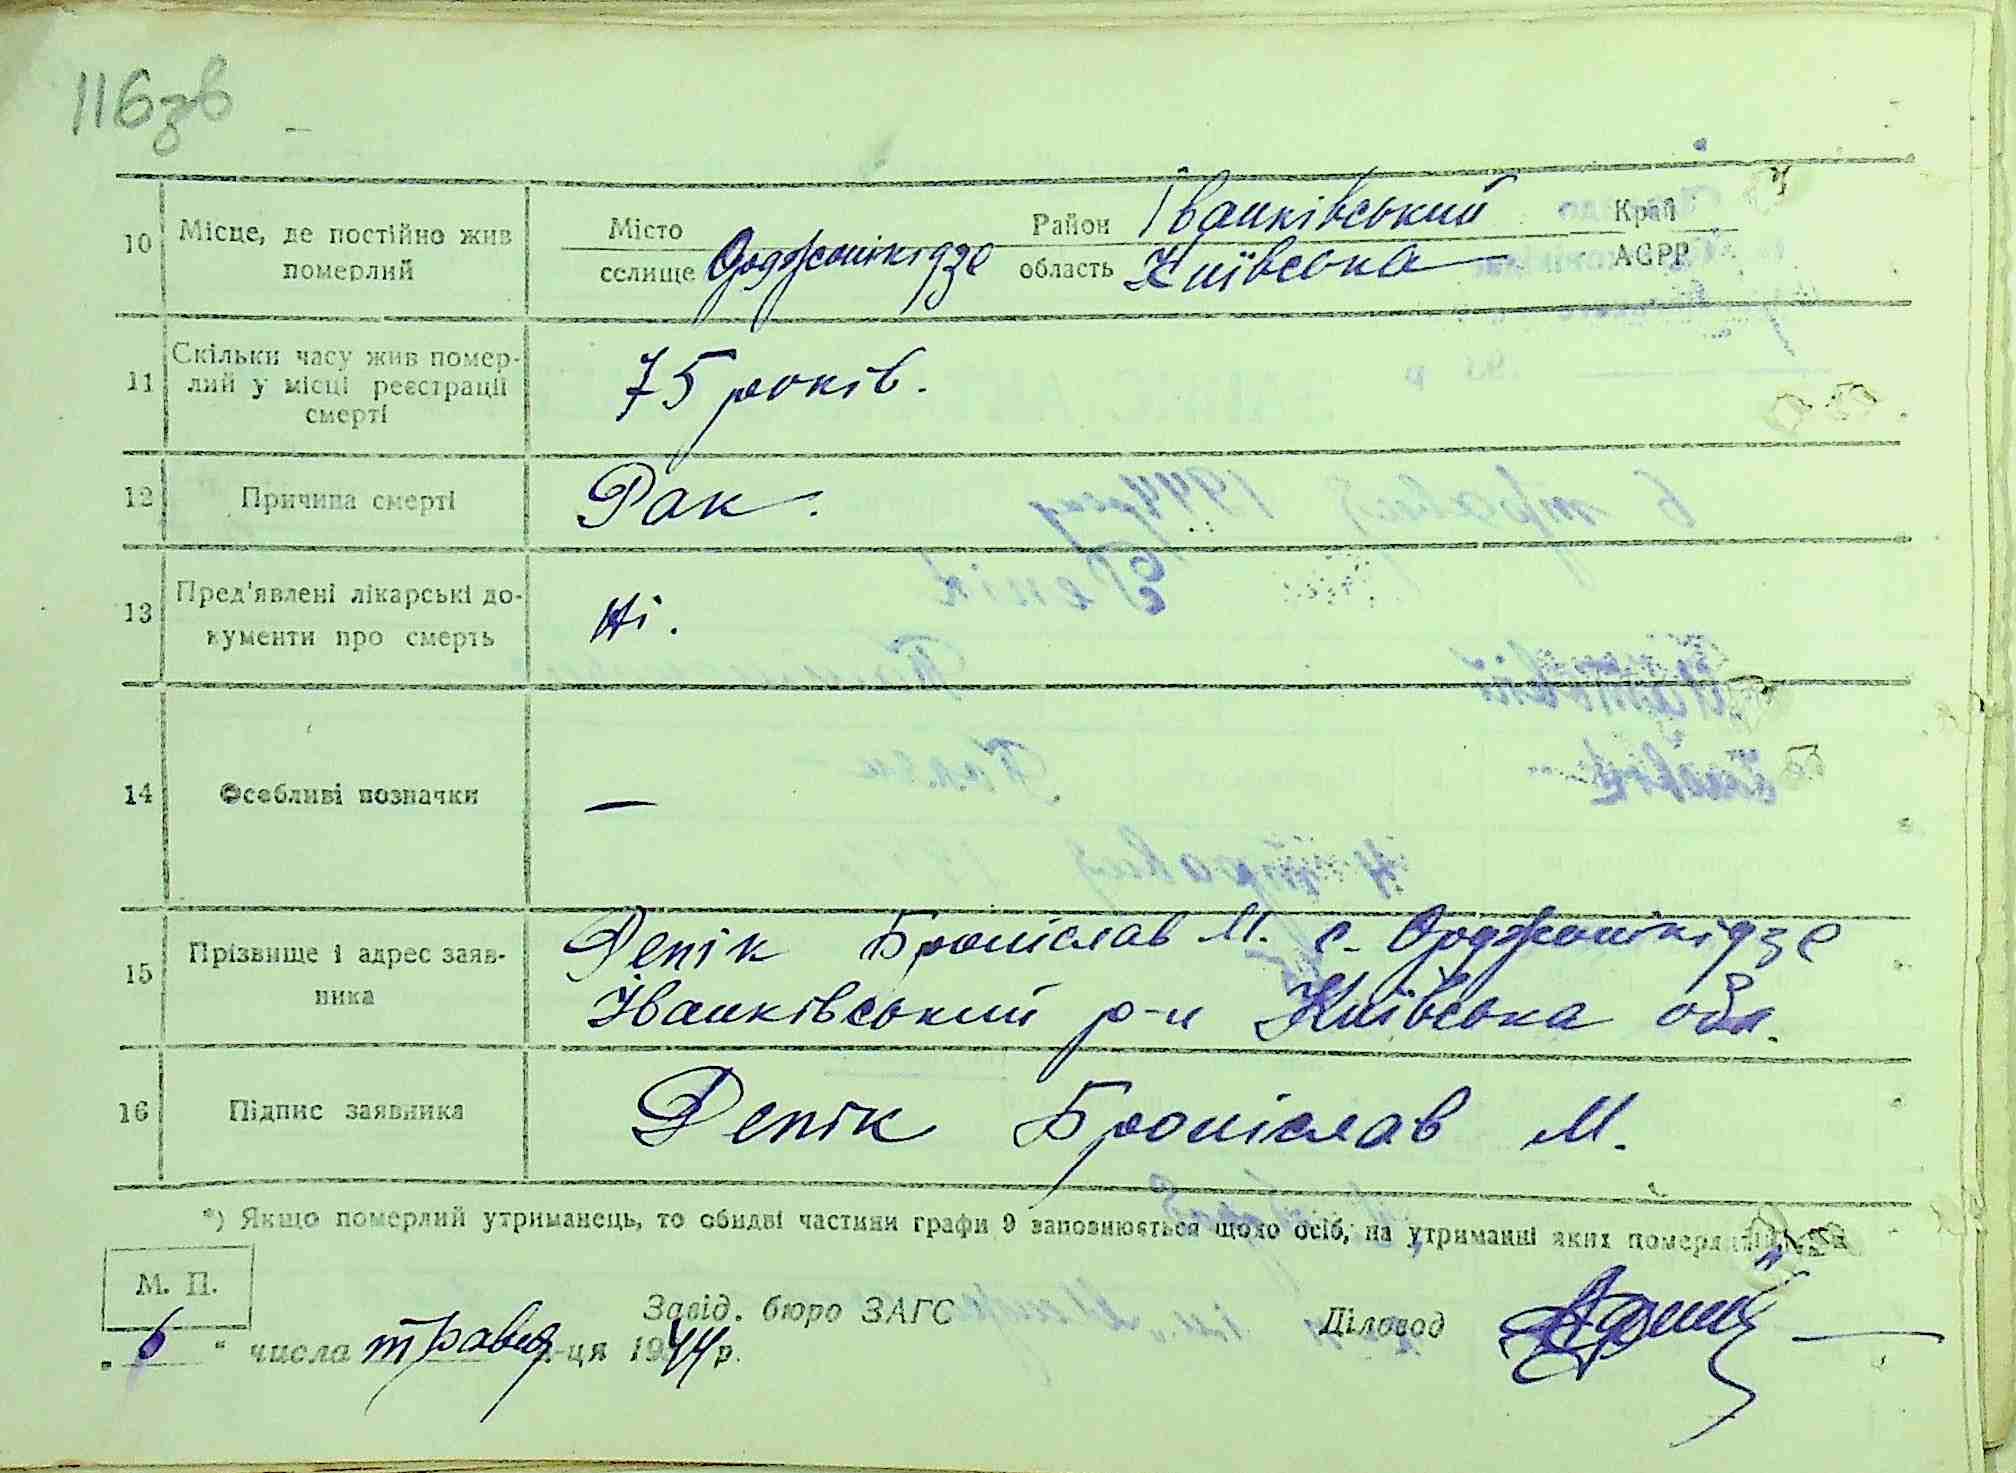 116зв
10 Місце, де постійно жив померлий Місто селище Орджонікідзе Район Іванківський область Київська Край АСРР
11 Скільки часу жив померлий у місці реєстрації смерті 75 років.
12 Причина смерті Рак.
13 Пред'явлені лікарські документи про смерть Ні.
14 Особливі позначки —
15 Прізвище і адрес заявника Репік Броніслав М. с. Орджонікідзе
Іванківський р-н Київська обл.
16 Підпис заявника Репік Броніслав М.
*) Якщо померлий утриманець, то обидві частини графи 9 заповнюється щодо осіб, на утриманні яких
М. П.
Завід. бюро ЗАГС Діловод
„6“ числа травня м-ця 1944 р.